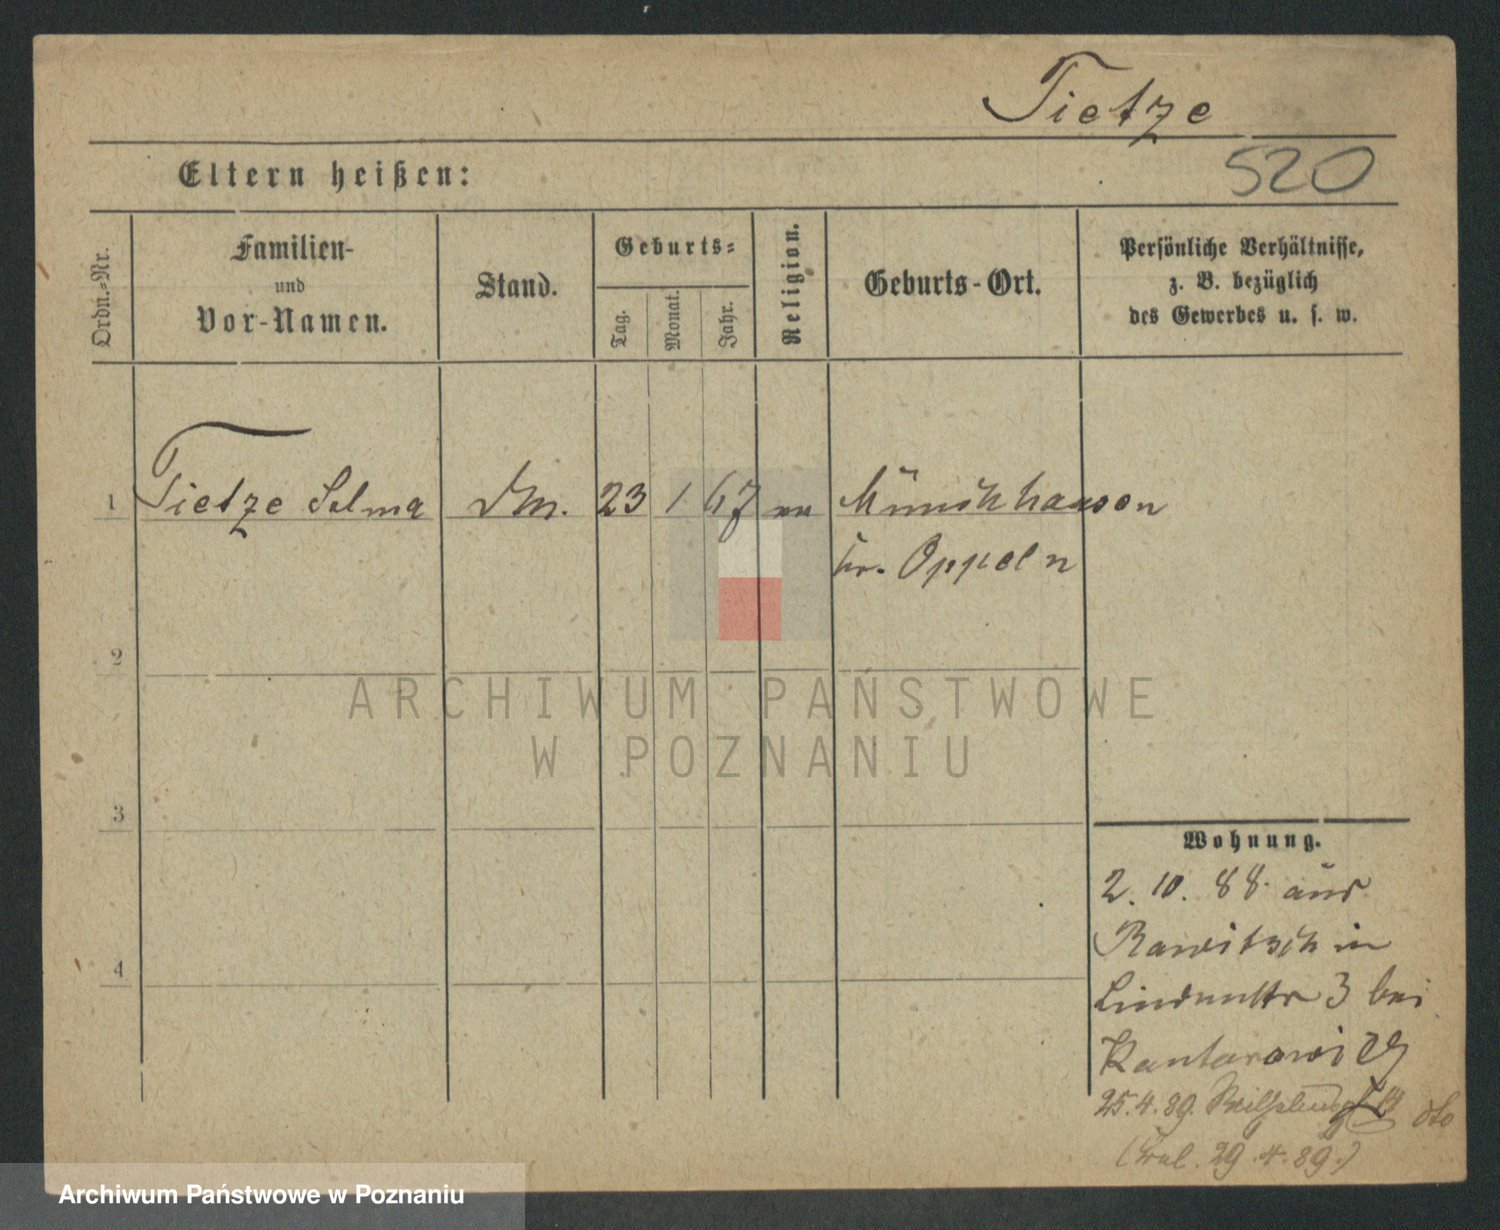 Tietze
520
Eltern heißen:
Ordn.-Nr.
Familien-
und
Vor-Namen.
Stand.
Geburts-
Tag.
Monat.
Jahr.
Religion.
Geburts-Ort.
Persönliche Verhältnisse,
z. B. bezüglich
des Gewerbes u. s. w.
1 Tietze Selma Dm. 23 1 67 Münchhausen
Kr. Oppeln
2
3
4
Wohnung.
2. 10. 88. aus
Rawitsch in
Lindenstr 3 bei
Kantorowicz
25.4.89.
29.4.89.)
ARCHIWUM PAŃSTWOWE
W POZNANIU
Archiwum Państwowe w Poznaniu